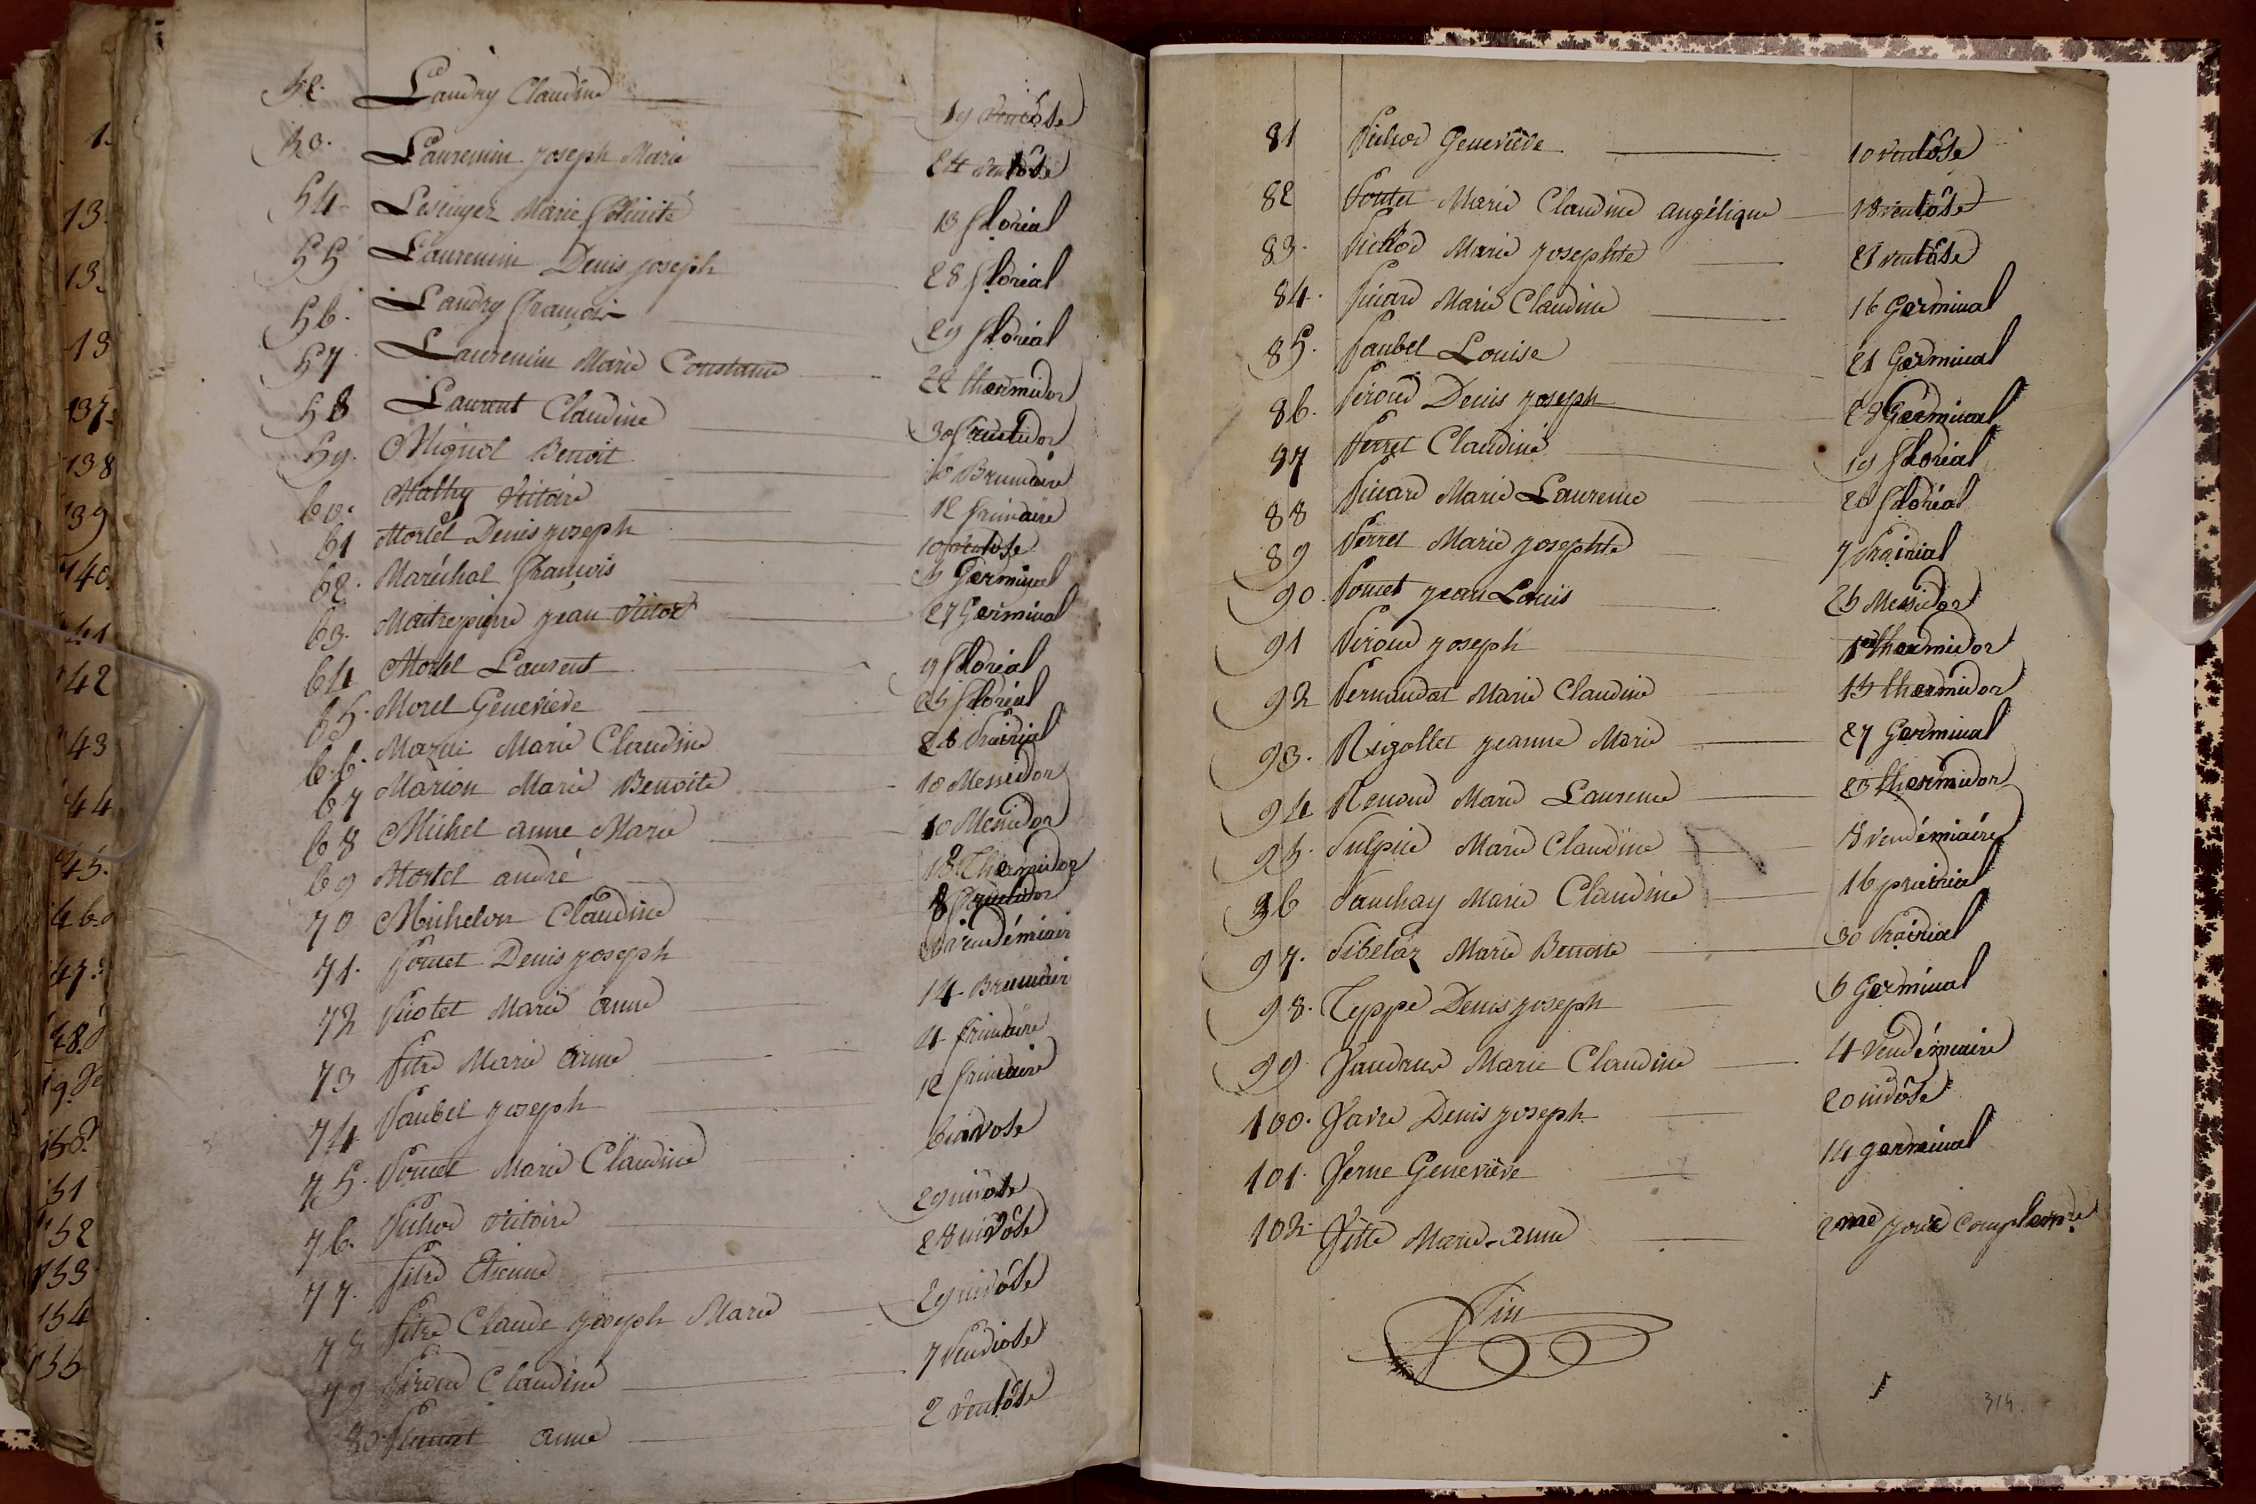 1.
13.
13.
13
137.
138
139
140.
141
142
143
144
145.
146.
147.
148.
149.
150.
151
152
153
154
155
52. Landry Claudine 19 ventôse
53. Lauremin joseph Marie 24 ventôse
54 Marie félicité 13 floréal
55 Lauremin Denis joseph 28 floréal
56. Landry françois 29 floréal
57 Lauremin Marie Constance 22 thermidor
58 Laurent Claudine 30 fructidor
59. Mignot Benoit Brumaire
60. Mathy Victoire 12 frimaire
61 Mortel Denis joseph 10 ventose
62. Maréchal françois Germinal
63. Maitrepierre jean Victor 27 Germinal
64 Mortel Laurent 9 floréal
65. Morel Geneviève 25 floréal
66. Marie Claudine 28 Prairial
67 Marion Marie Benoite 10 Messidor
68 Michel anne Marie 10 Messidor
69 Mortel andré 18 Thermidor
70 Michelon Claudine 8 fructidor
71. Poncet Denis joseph vendémiair
72 Marie anne 14 Brumair
73 fitre Marie anne 4 frimaire
74 Paubel joseph 12 frimaire
75. Poncet Marie Claudine 6 nivose
76. Pichod Victoire 29 nivose
77. fitre Etienne 28 nivôse
78 fitre Claude joseph Marie 29 nivôse
79 Piroud Claudine 7 Vendiose
80 anne 2 ventôse
81 Pichod Geneviève 10 ventôse
82 Pontet Marie Claudine angélique 18 ventôse
83. Pichod Marie josephte 21 ventôse
84. Picard Marie Claudine 16 Germinal
85. Paubel Louise 21 Germinal
86. Piroud Denis joseph 28 Germinal
87 Perret Claudine 19 floréal
88 Picard Marie Laurence 26 floréal
89 Perret Marie josephte 7 Prairial
90. Poncet jean Louis 25 Messidor
91 Piroud joseph 1er thermidor
92 Pernaudat Marie Claudine 15 thermidor
93. Rigollet jeanne Marie 27 Germinal
94 Renoud Marie Laurence 23 thermidor
95. Sulpice Marie Claudine 8 vendémiaire
96 Marie Claudine 16 prairial
97. Marie Benoite 30 Prairial
98. Teppe Denis joseph 6 Germinal
99 Vaudrus Marie Claudine 4 Vendémiaire
100. Favre Denis joseph 20 nivôse
101. Verne Geneviève 14 germinal
102. Marie-anne 2me jour Complemre
Fin
314.